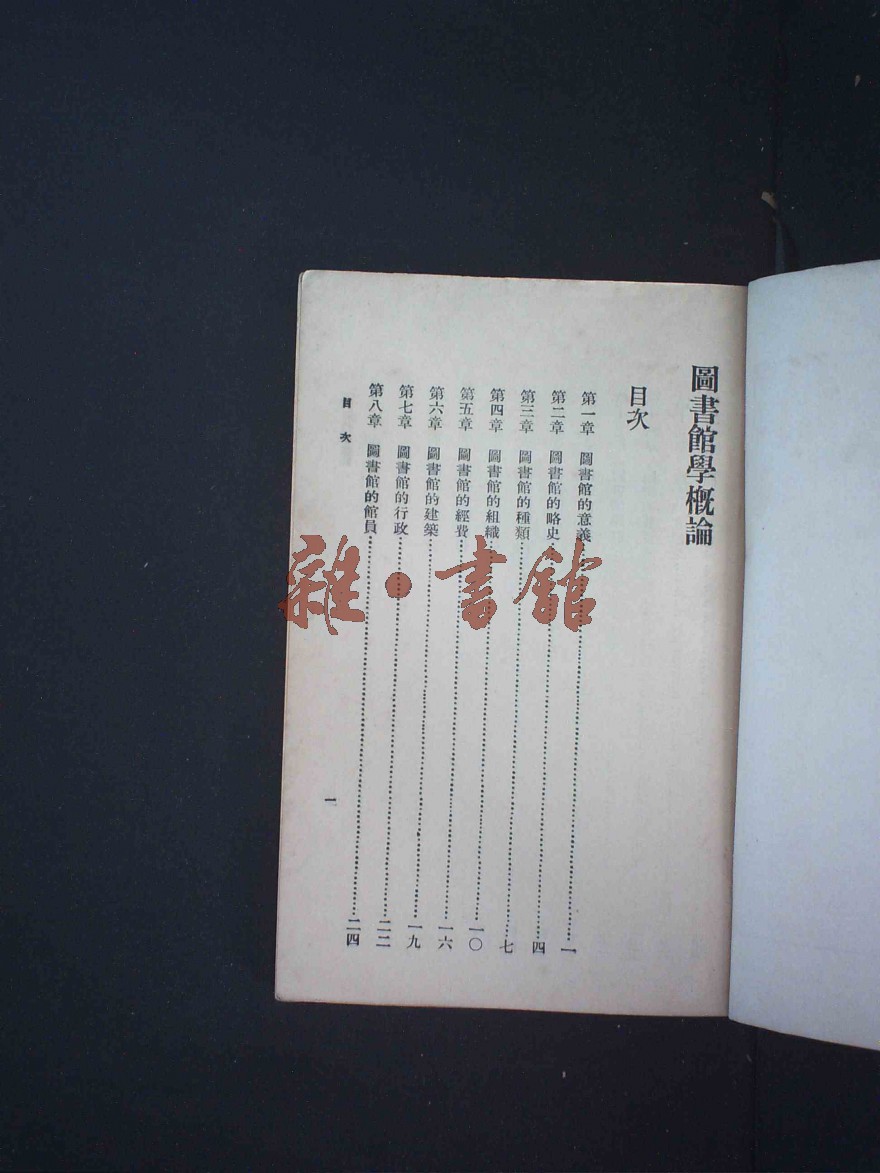 圖書館學概論
目次
第一章 圖書館的意義…………一
第二章 圖書館的略史…………四
第三章 圖書館的種類…………七
第四章 圖書館的組織…………一〇
第五章 圖書館的經費…………一六
第六章 圖書館的建築…………一九
第七章 圖書館的行政…………二二
第八章 圖書館的館員…………二四
目次
一
雜·書館